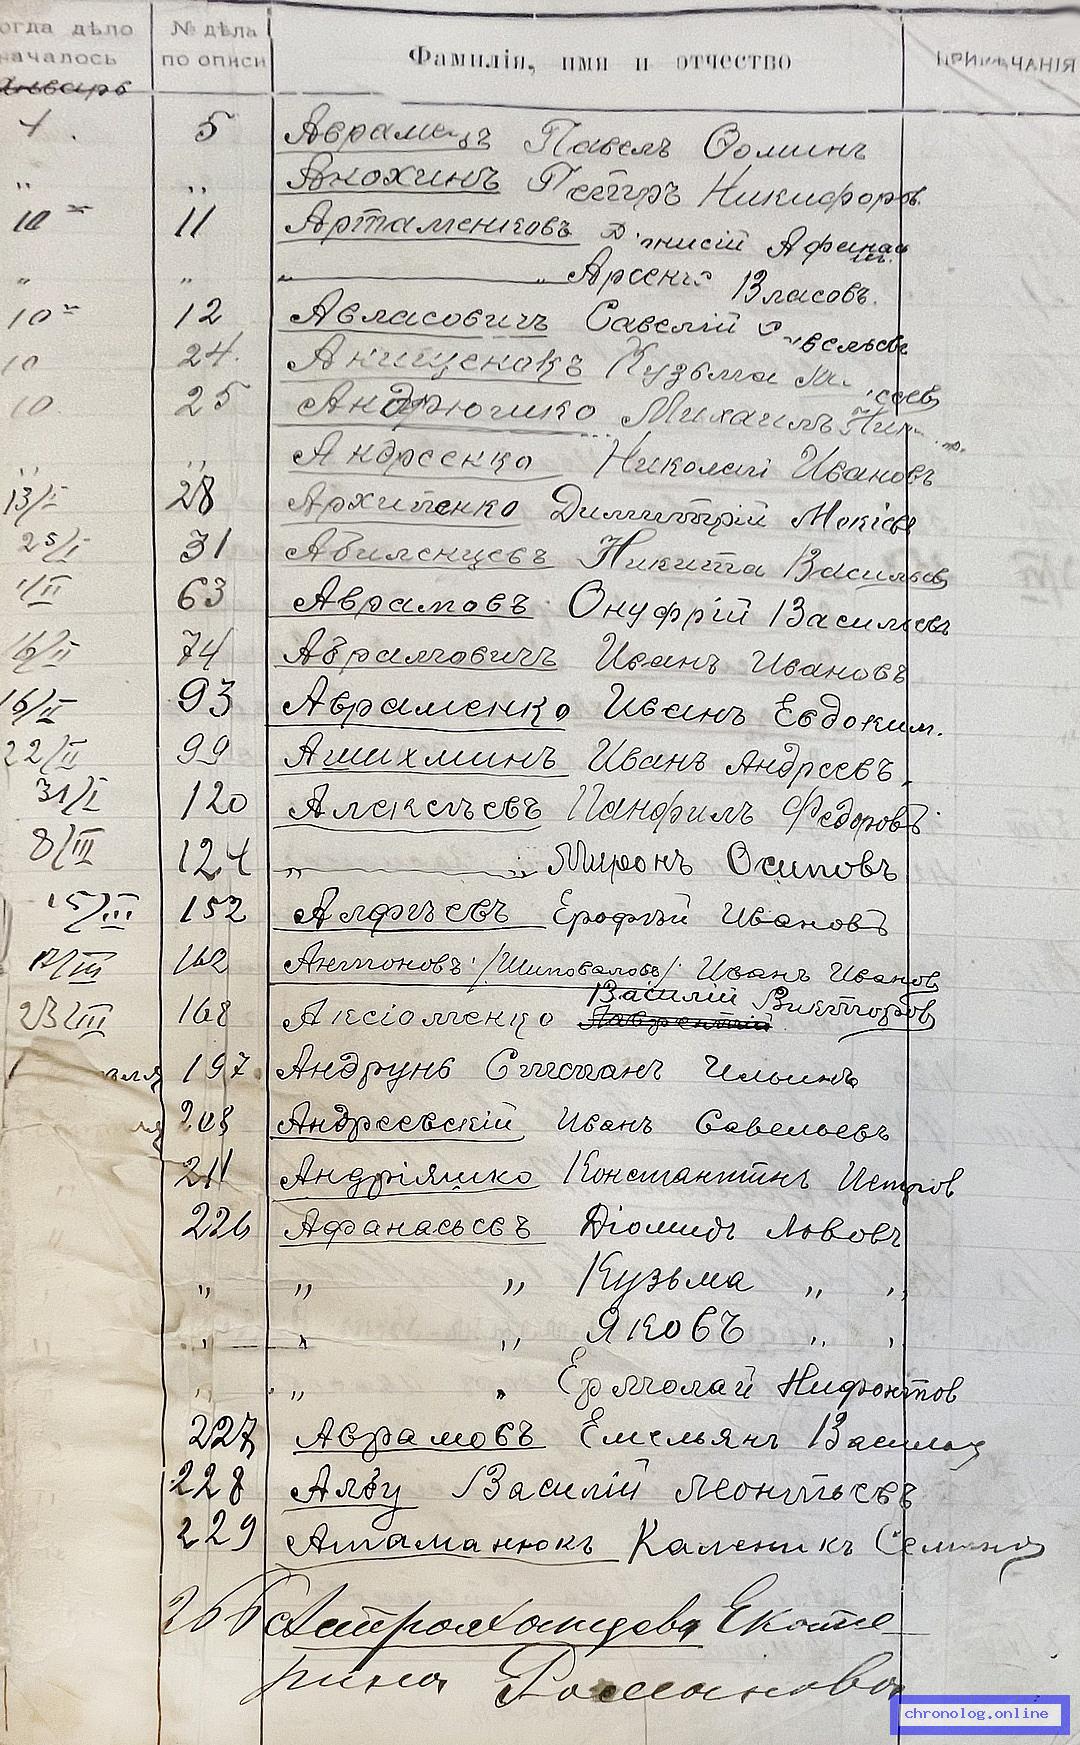 когда дѣло № дѣла Фамилія, имя и отчество ПРИМѢЧАНІЯ
началось по описи
Январь
4. 5 Аврамецъ Павелъ Ѳоминъ
" " Анохинъ Петръ Никифоров.
10 11 Артаменковъ Діонисій Афанас
" " " Арсеній Власовъ.
10 12 Авласовичъ Савелій Савельевъ
10 24. Анищенокъ Кузьма
10. 25 Андрюшко Михаилъ
" " Андреенко Николай Ивановъ
13/I 28 Архипенко Димитрій Мокіевъ
25/I 31 Абиленцевъ Никита Васильев
1/II 63 Аврамовъ Онуфрій Васильевъ
16/II 74 Абрамовичъ Иванъ Ивановъ
16/II 93 Авраменко Иванъ Евдоким.
22/II 99 Ашихминъ Иванъ Андреевъ
31/I 120 Алексѣевъ Панфилъ Федоровъ
8/III 124 " " Миронъ Осиповъ
15/III 152 Алфѣевъ Ерофѣй Ивановъ
17/III 162 Антоновъ /Шиповаловъ/ Иванъ Иванов
Василій Викторов
23/III 168 Аксіоменко Лаврентій
197. Андрунь Степанъ Ильинъ
208 Андреевскій Иванъ Савельевъ
211 Андріяшко Константинъ Петров
226 Афанасьевъ Діомидъ Львовъ
" " " Кузьма " "
" " " Яковъ " "
" " " Ермолай Нифонтов
227 Аврамовъ Емельянъ Васильев
228 Албу Василій Леонтьевъ
229 Атаманюкъ Каленикъ Семенов
266 Астраханцева Екате-
рина Романовна
chronolog.online